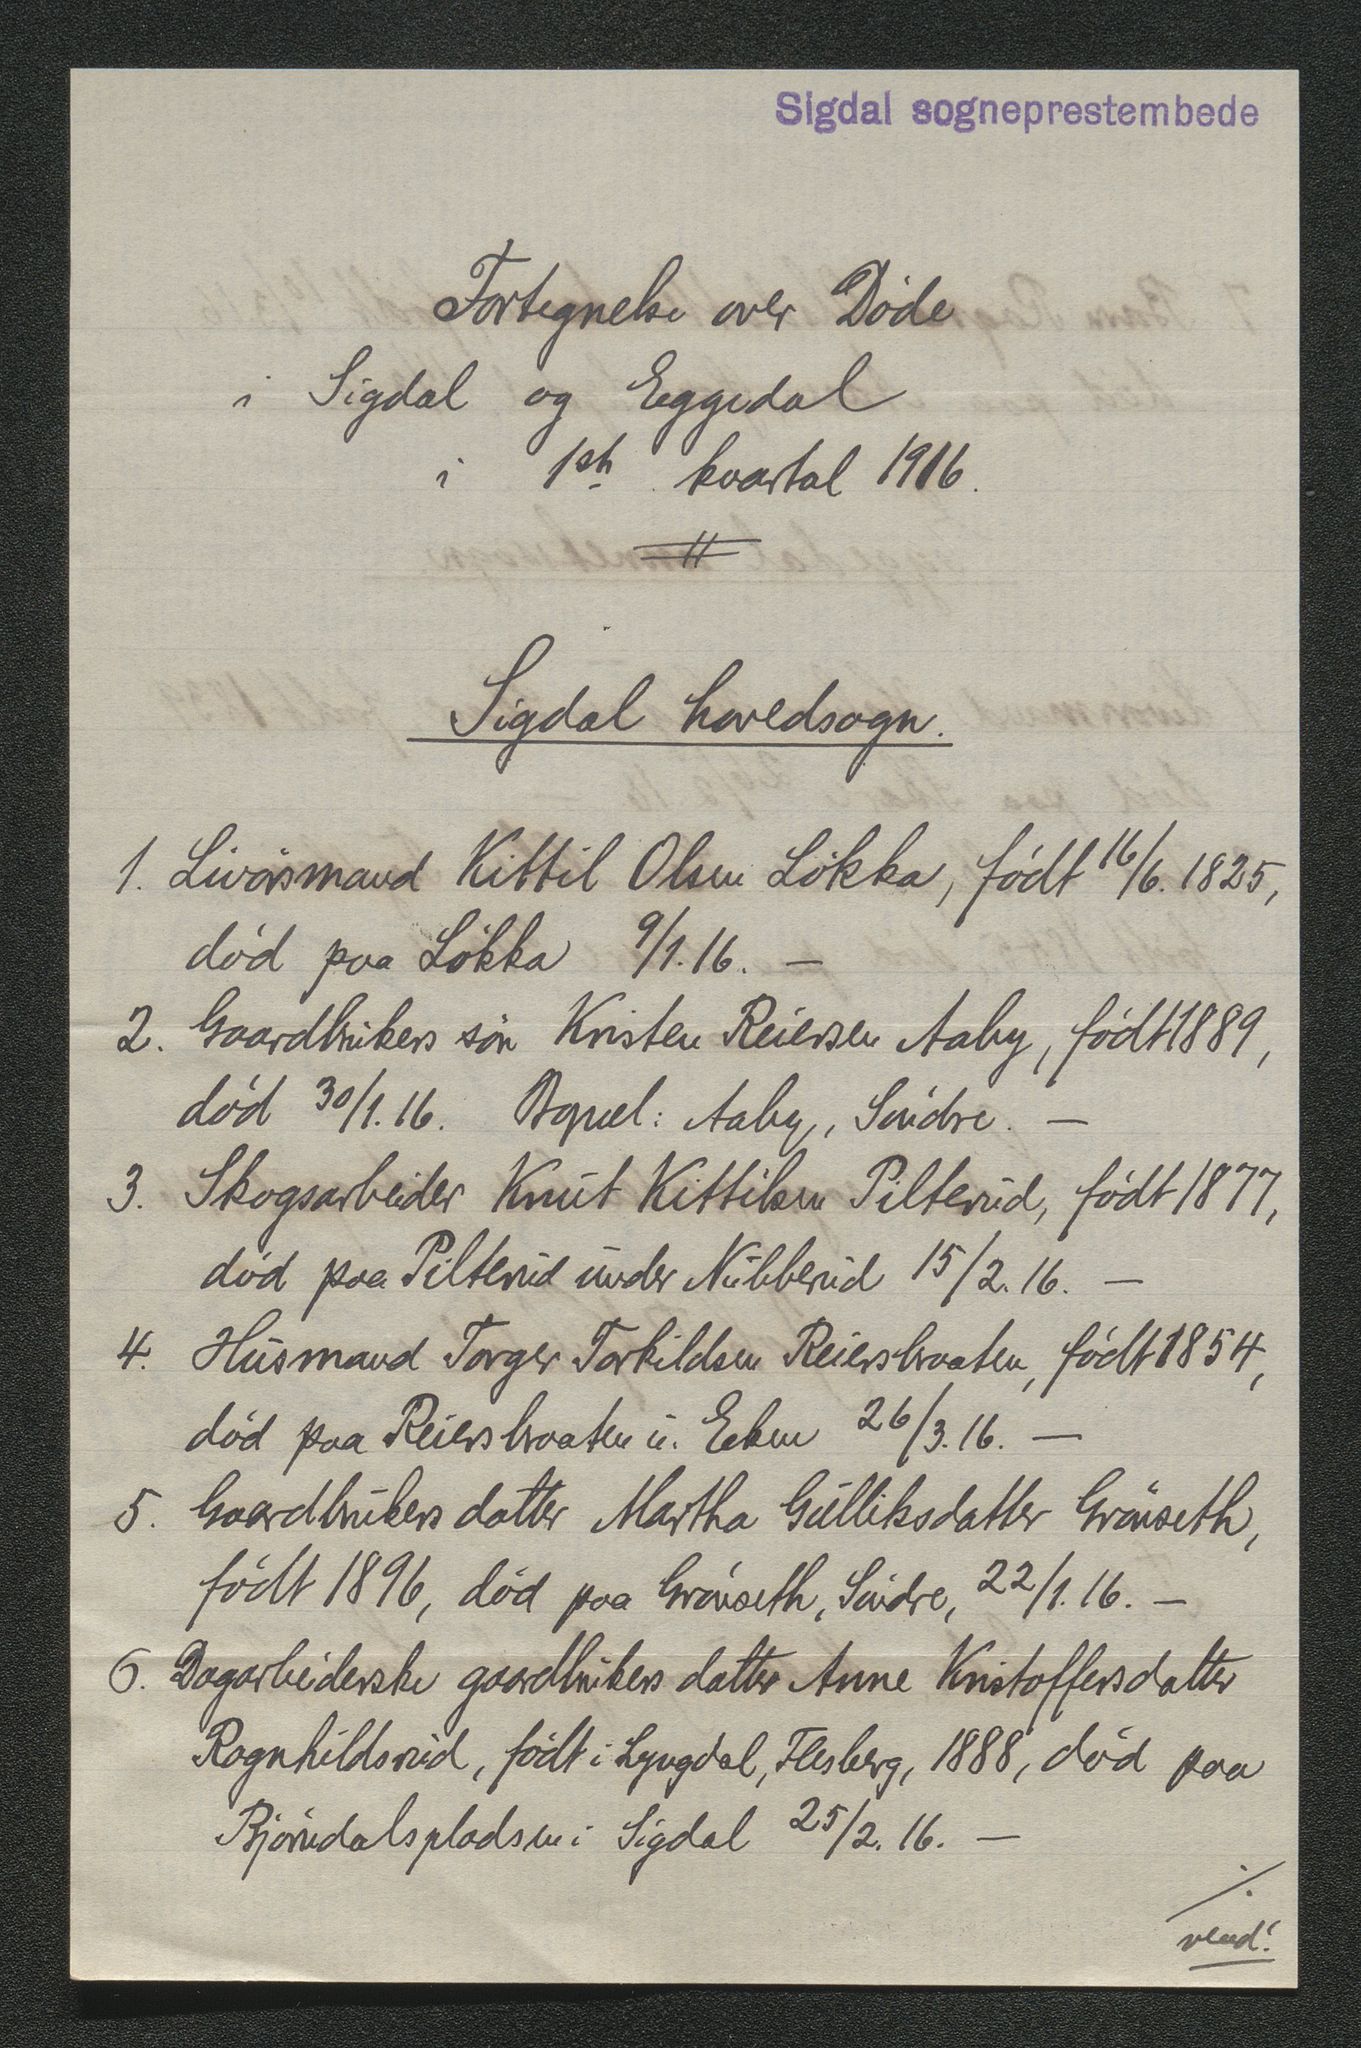 Sigdal sogneprestembede
Fortegnelse over Døde
i Sigdal og Eggedal
i 1ste kvartal 1916.
Sigdal hovedsogn.
1. Livörsmand Kittil Olsen Lökka, født 16/6. 1825,
død paa Lökka 9/1. 16. —
2. Gaardbrukers sön Kristen Reiersen Aaby, født 1889,
død 30/1. 16. Bopæl: Aaby, Sindre. —
3. Skogsarbeider Knut Kittilsen Pilterud, født 1877,
død paa Pilterud under Nubberud 15/2. 16. —
4. Husmand Torger Torkildsen Reiersbraaten, født 1854,
død paa Reiersbraaten u. Eken 26/3. 16. —
5. Gaardbrukers datter Martha Gulliksdatter Grönseth,
født 1896, død paa Grönseth, Sindre, 22/1. 16. —
6. Dagarbeiderske gaardbrukers datter Anne Kristoffersdatter
Rognhildsrud, født i Lyngdal, Flesberg, 1888, død paa
Bjørndalspladsen i Sigdal 25/2. 16. —
./.
vend!